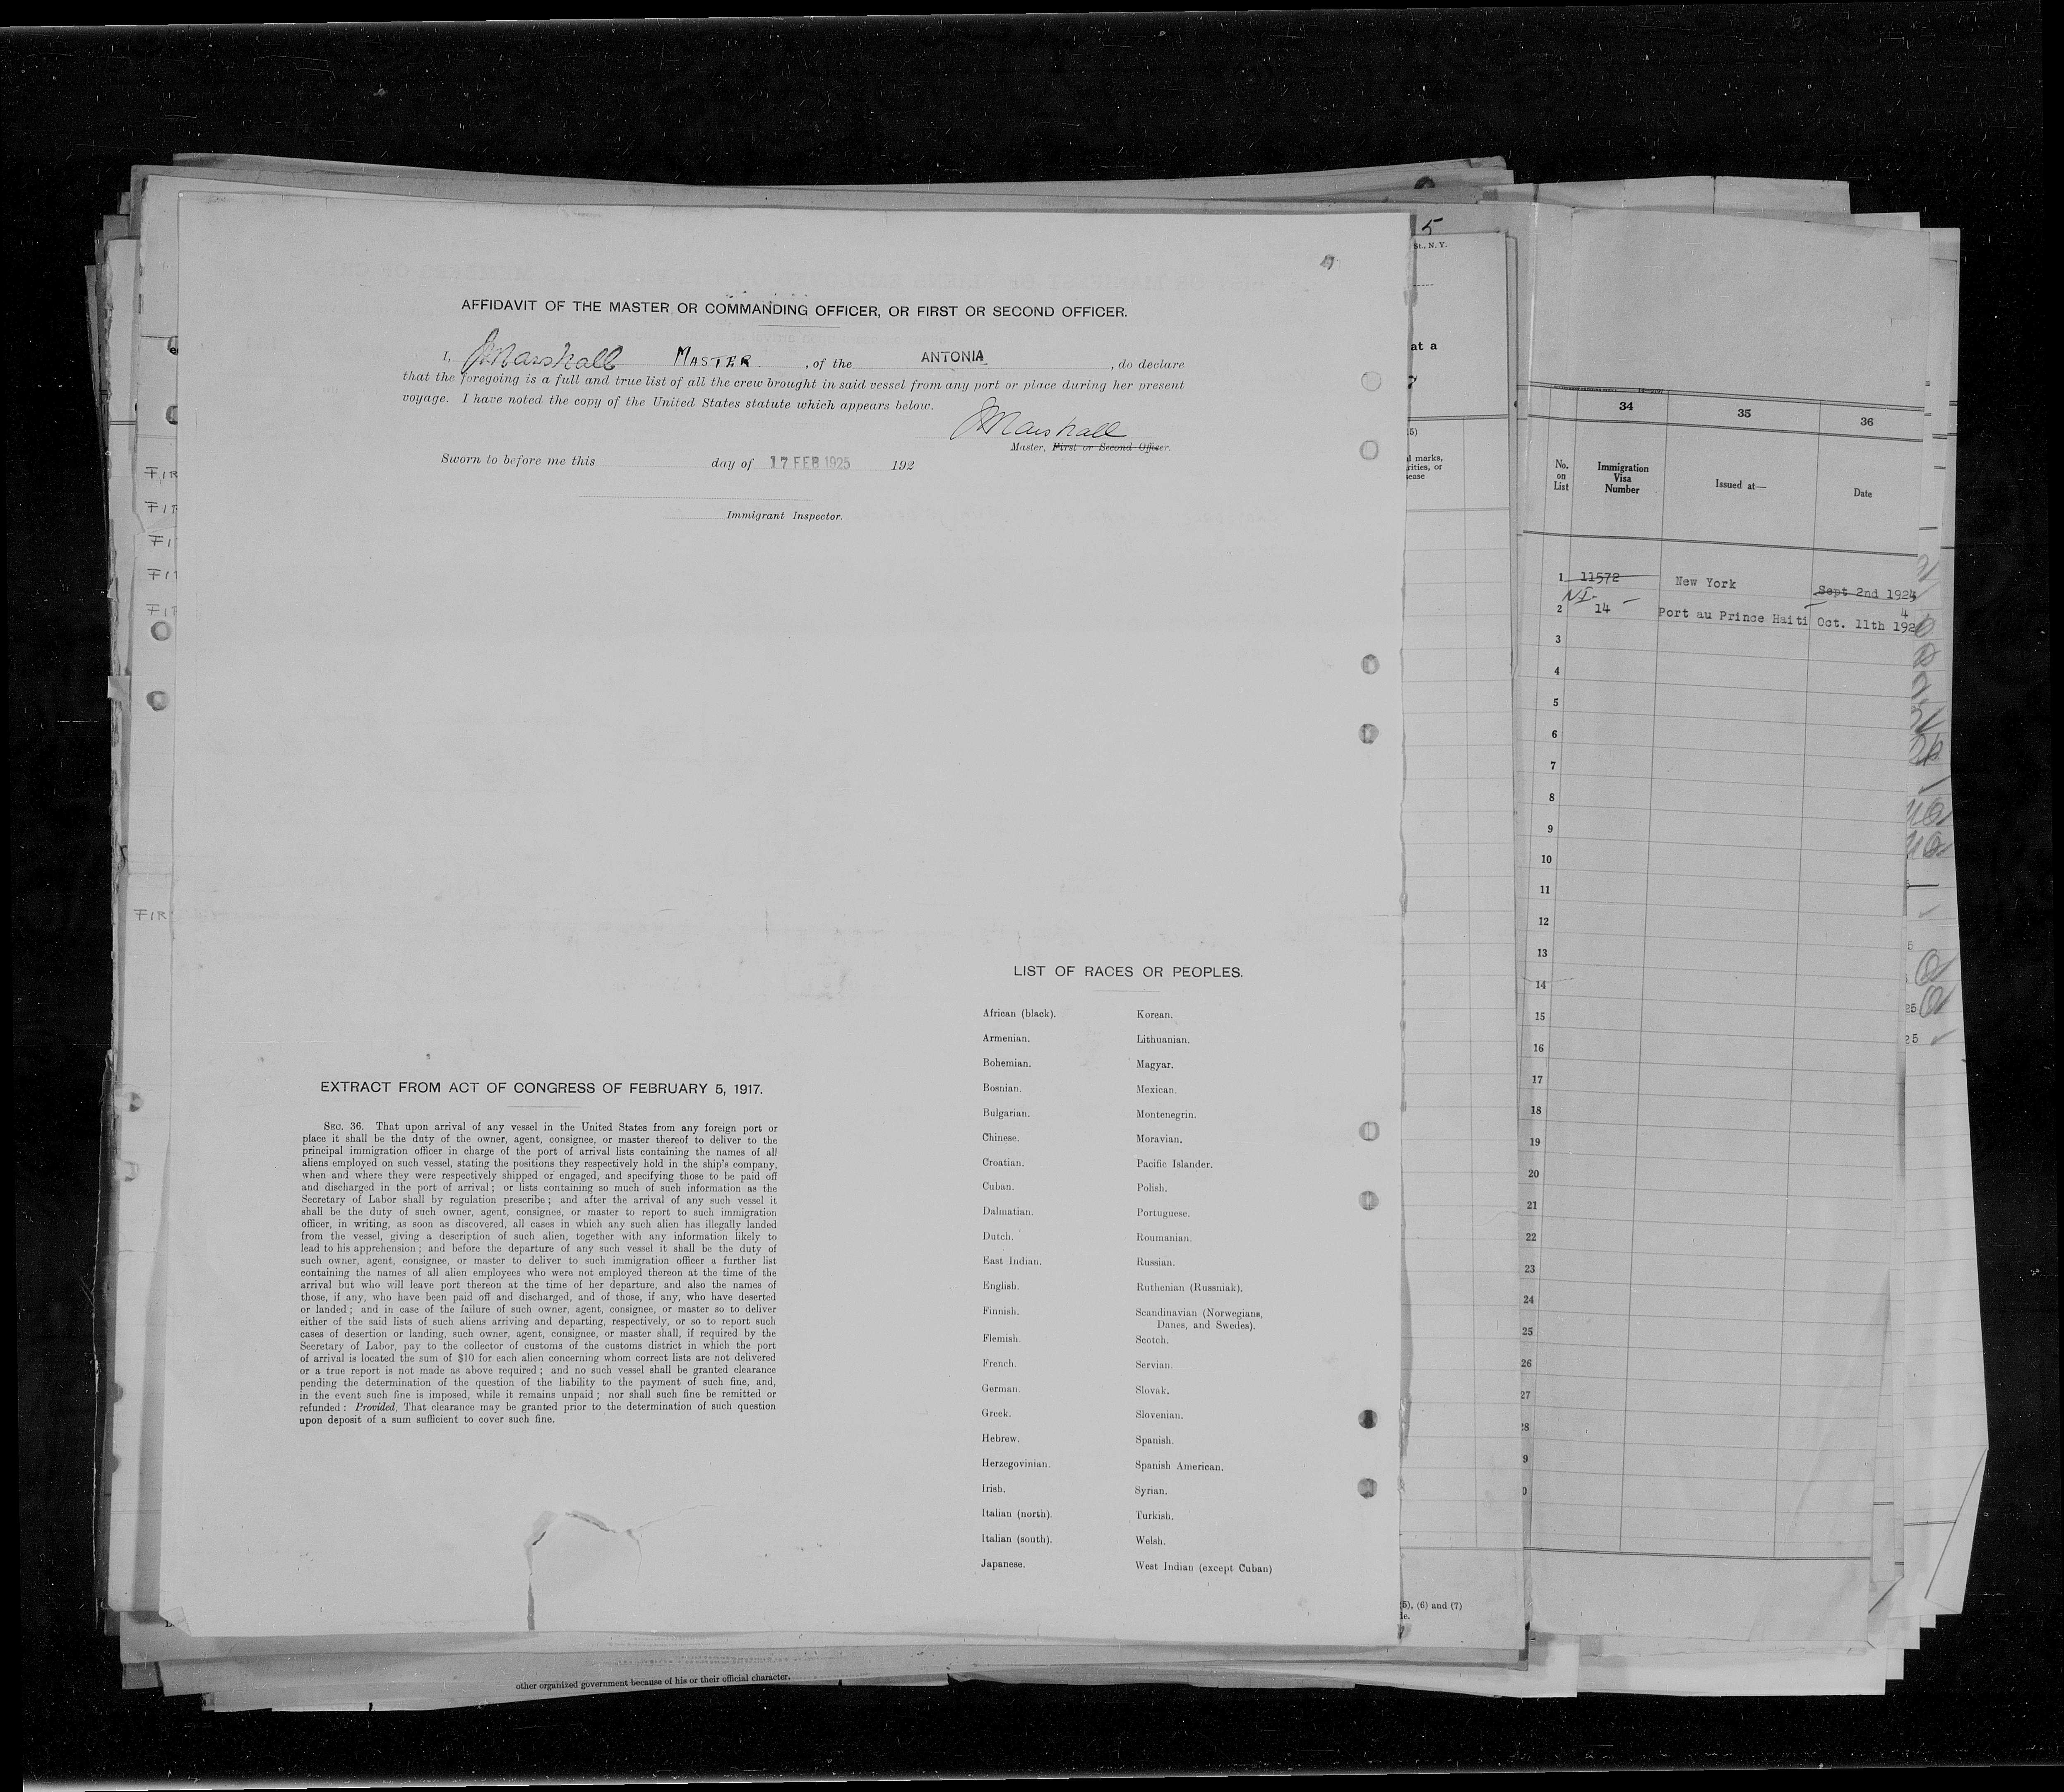 AFFIDAVIT OF THE MASTER OR COMMANDING OFFICER, OR FIRST OR SECOND OFFICER.
I, JMarshall MASTER, of the ANTONIA, do declare
that the foregoing is a full and true list of all the crew brought in said vessel from any port or place during her present
voyage. I have noted the copy of the United States statute which appears below.
JMarshall
Master, First or Second Officer.
Sworn to before me this day of 17 FEB 1925 192
Immigrant Inspector.
EXTRACT FROM ACT OF CONGRESS OF FEBRUARY 5, 1917.
SEC. 36. That upon arrival of any vessel in the United States from any foreign port or
place it shall be the duty of the owner, agent, consignee, or master thereof to deliver to the
principal immigration officer in charge of the port of arrival lists containing the names of all
aliens employed on such vessel, stating the positions they respectively hold in the ship's company,
when and where they were respectively shipped or engaged, and specifying those to be paid off
and discharged in the port of arrival; or lists containing so much of such information as the
Secretary of Labor shall by regulation prescribe; and after the arrival of any such vessel it
shall be the duty of such owner, agent, consignee, or master to report to such immigration
officer, in writing, as soon as discovered, all cases in which any such alien has illegally landed
from the vessel, giving a description of such alien, together with any information likely to
lead to his apprehension; and before the departure of any such vessel it shall be the duty of
such owner, agent, consignee, or master to deliver to such immigration officer a further list
containing the names of all alien employees who were not employed thereon at the time of the
arrival but who will leave port thereon at the time of her departure, and also the names of
those, if any, who have been paid off and discharged, and of those, if any, who have deserted
or landed; and in case of the failure of such owner, agent, consignee, or master so to deliver
either of the said lists of such aliens arriving and departing, respectively, or so to report such
cases of desertion or landing, such owner, agent, consignee, or master shall, if required by the
Secretary of Labor, pay to the collector of customs of the customs district in which the port
of arrival is located the sum of $10 for each alien concerning whom correct lists are not delivered
or a true report is not made as above required; and no such vessel shall be granted clearance
pending the determination of the question of the liability to the payment of such fine, and,
in the event such fine is imposed, while it remains unpaid; nor shall such fine be remitted or
refunded: Provided, That clearance may be granted prior to the determination of such question
upon deposit of a sum sufficient to cover such fine.
LIST OF RACES OR PEOPLES.
African (black). Korean.
Armenian. Lithuanian.
Bohemian. Magyar.
Bosnian. Mexican.
Bulgarian. Montenegrin.
Chinese. Moravian.
Croatian. Pacific Islander.
Cuban. Polish.
Dalmatian. Portuguese.
Dutch. Roumanian.
East Indian. Russian.
English. Ruthenian (Russniak).
Finnish. Scandinavian (Norwegians,
Danes, and Swedes).
Flemish. Scotch.
French. Servian.
German. Slovak.
Greek. Slovenian.
Hebrew. Spanish.
Herzegovinian. Spanish American.
Irish. Syrian.
Italian (north). Turkish.
Italian (south). Welsh.
Japanese. West Indian (except Cuban)
other organized government because of his or their official character.
FIR
FIR
FI
FI
FIR
FIR
5
St., N. Y.
at a
5)
marks,
rities, or
ease
5), (6) and (7)
le.
34 35 36
No. on List
Immigration Visa Number
Issued at—
Date
1 11572 New York Sept 2nd 1924
NI-
2 14 Port au Prince Haiti Oct. 11th 1924
3
4
5
6
7
8
9
10
11
12
13
14
15
16
17
18
19
20
21
22
23
24
25
26
27
28
9
0
25
25